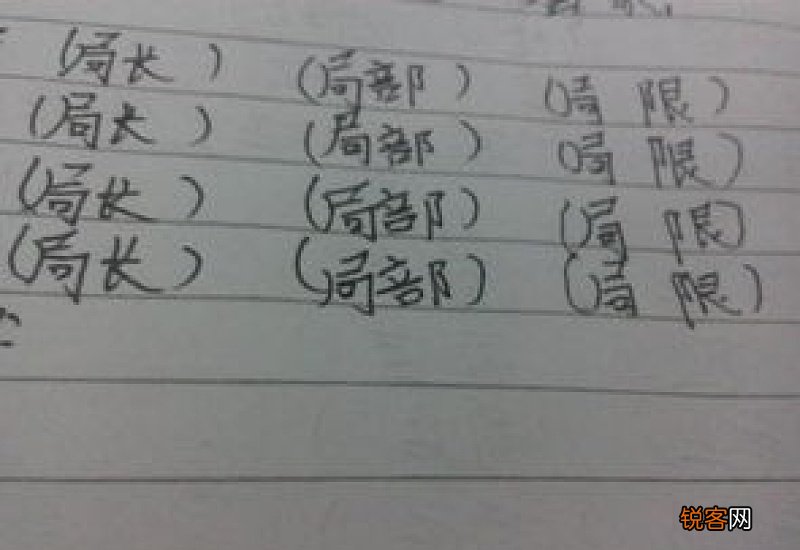 (局长) (局部) (局限)
(局长) (局部) (局限)
(局长) (局部) (局限)
(局长) (局部) (局限)
锐客网